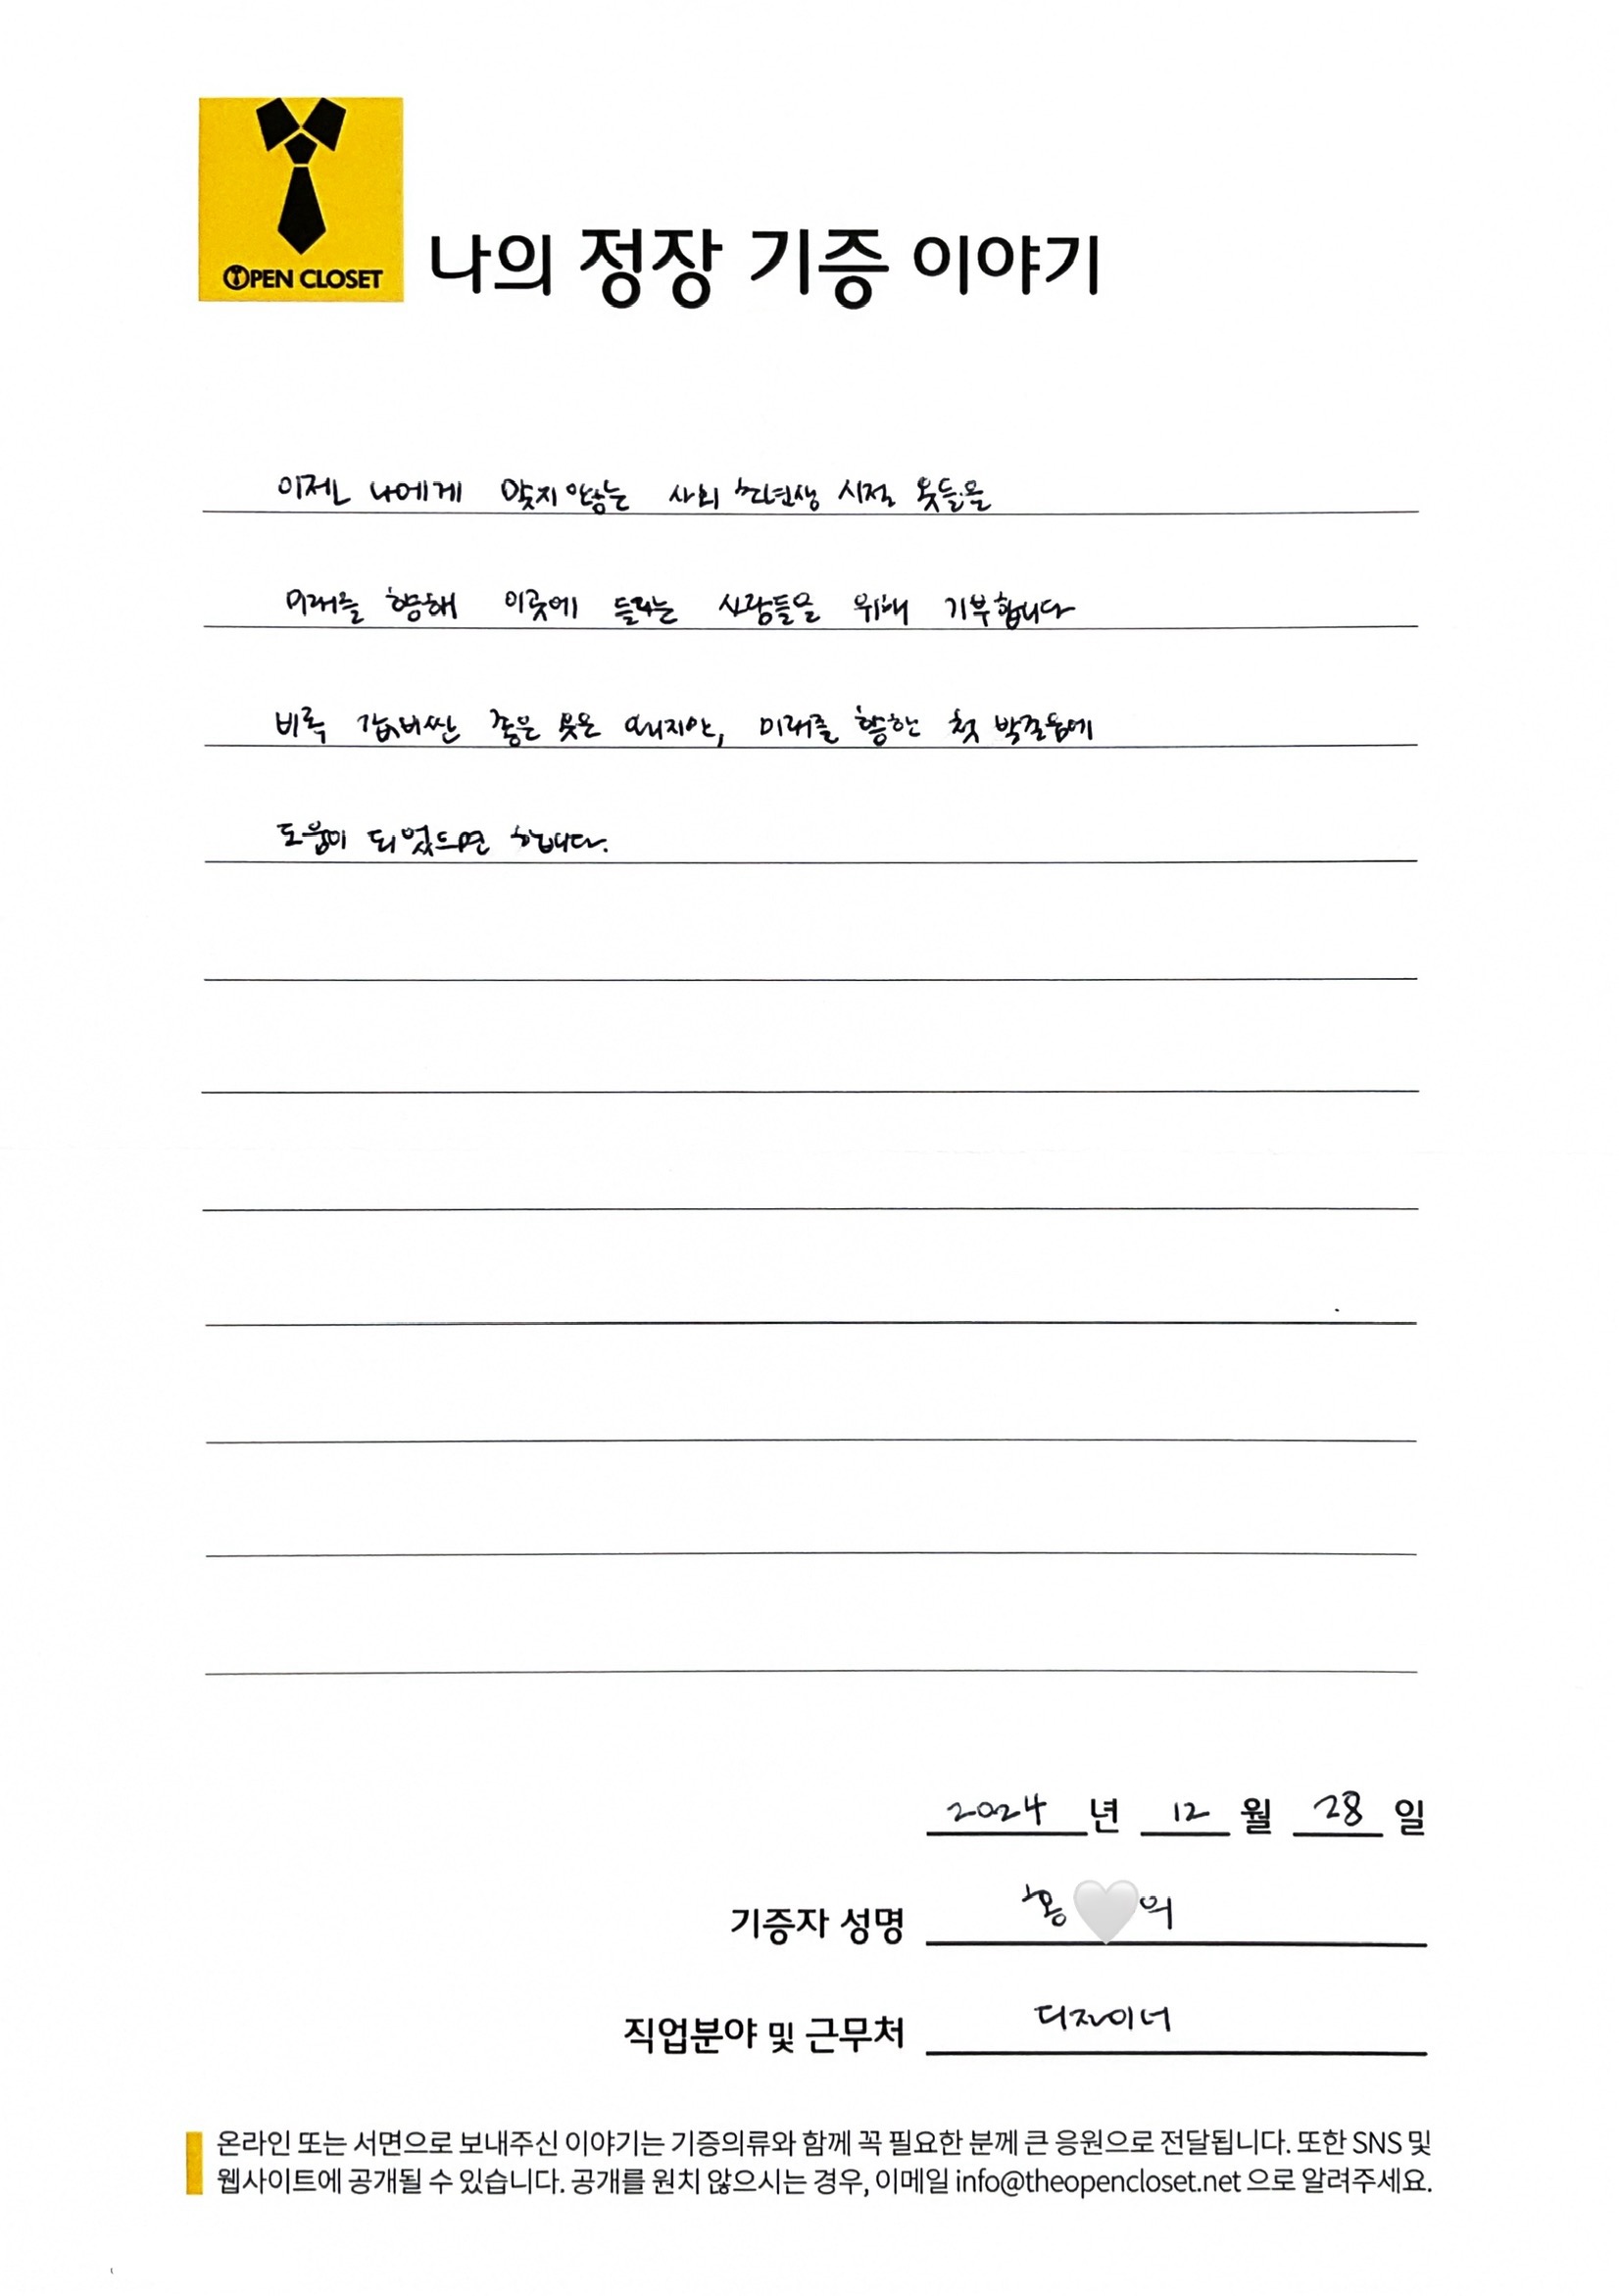 OPEN CLOSET
나의 정장 기증 이야기
이젠 나에게 맞지않는 사회 초년생 시절 옷들을
미래를 향해 이곳에 들리는 사람들을 위해 기부합니다
비록 값비싼 좋은 옷은 아니지만, 미래를 향한 첫 발걸음에
도움이 되었으면 합니다.
2024 년 12 월 28 일
기증자 성명 홍 의
직업분야 및 근무처 디자이너
온라인 또는 서면으로 보내주신 이야기는 기증의류와 함께 꼭 필요한 분께 큰 응원으로 전달됩니다. 또한 SNS 및
웹사이트에 공개될 수 있습니다. 공개를 원치 않으시는 경우, 이메일 info@theopencloset.net 으로 알려주세요.